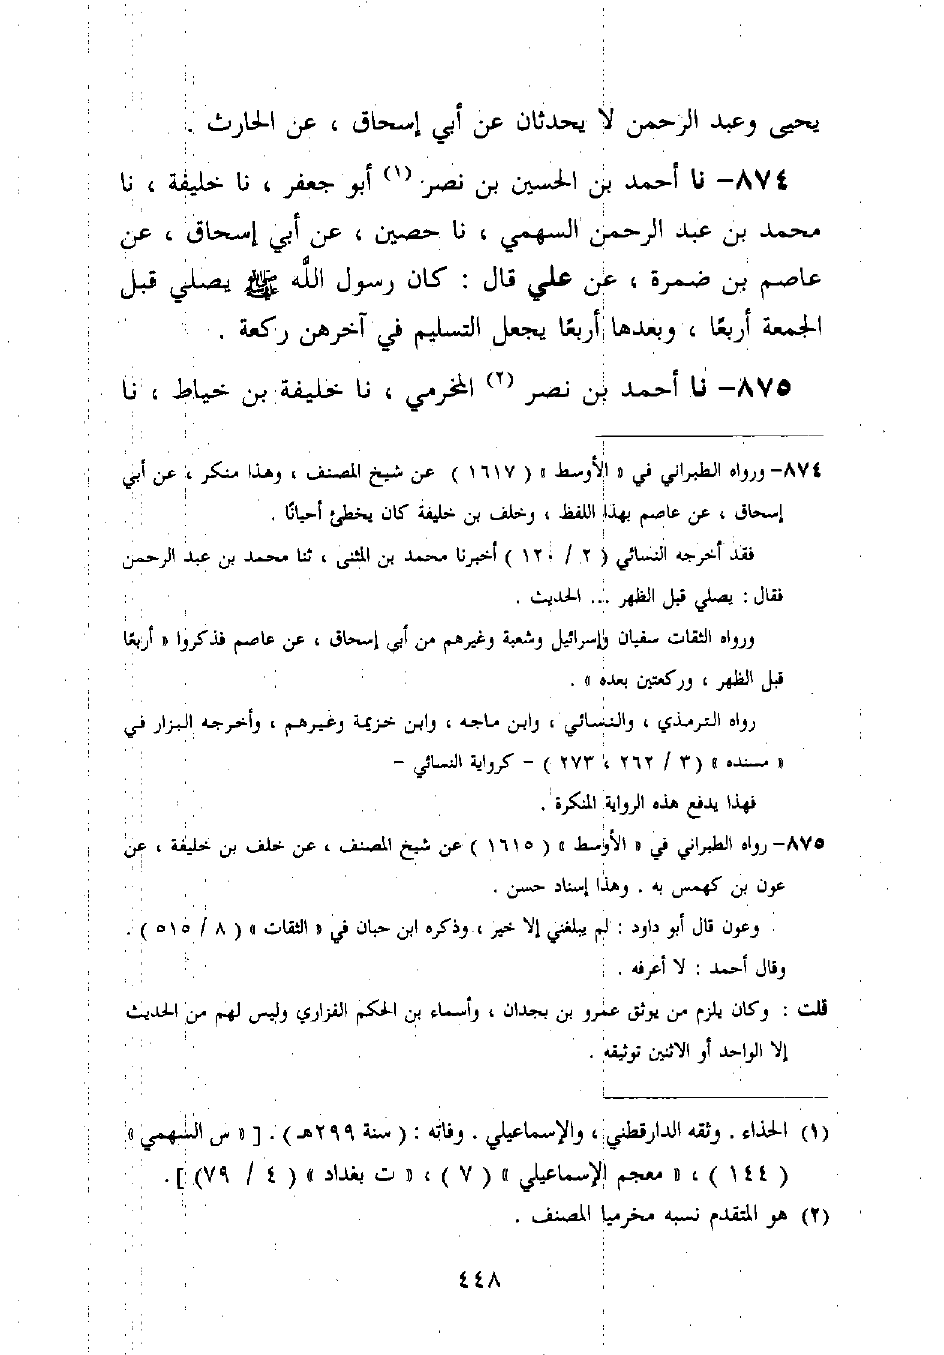 يحيى وعبد الرحمن لا يحدثان عن أبي إسحاق ، عن الحارث .
٨٧٤- نا أحمد بن الحسين بن نصر (١) أبو جعفر ، نا خليفة ، نا
محمد بن عبد الرحمن السهمي ، نا حصين ، عن أبي إسحاق ، عن
عاصم بن ضمرة ، عن علي قال : كان رسول الله ﷺ يصلي قبل
الجمعة أربعًا ، وبعدها أربعًا يجعل التسليم في آخرهن ركعة .
٨٧٥- نا أحمد بن نصر (٢) المخرمي ، نا خليفة بن خياط ، نا
٨٧٤- ورواه الطبراني في « الأوسط » ( ١٦١٧ ) عن شيخ المصنف ، وهذا منكر ، عن أبي
إسحاق ، عن عاصم بهذا اللفظ ، وخلف بن خليفة كان يخطئ أحيانًا .
فقد أخرجه النسائي ( ٢ / ١٢٠ ) أخبرنا محمد بن المثنى ، ثنا محمد بن عبد الرحمن
فقال : يصلي قبل الظهر ... الحديث .
ورواه الثقات سفيان وإسرائيل وشعبة وغيرهم من أبي إسحاق ، عن عاصم فذكروا « أربعًا
قبل الظهر ، وركعتين بعده » .
رواه الترمذي ، والنسائي ، وابن ماجه ، وابن خزيمة وغيرهم ، وأخرجه البزار في
« مسنده » (٣ / ٢٦٢ ، ٢٧٣ ) - كرواية النسائي -
فهذا يدفع هذه الرواية المنكرة .
٨٧٥- رواه الطبراني في « الأوسط » ( ١٦١٥ ) عن شيخ المصنف ، عن خلف بن خليفة ، عن
عون بن كهمس به . وهذا إسناد حسن .
وعون قال أبو داود : لم يبلغني إلا خير ، وذكره ابن حبان في « الثقات » ( ٨ / ٥١٥ ) .
وقال أحمد : لا أعرفه .
قلت : وكان يلزم من يوثق عمرو بن بجدان ، وأسماء بن الحكم الفزاري وليس لهم من الحديث
إلا الواحد أو الاثنين توثيقه .
(١) الحذاء . وثقه الدارقطني ، والإسماعيلي . وفاته : ( سنة ٢٩٩هـ ) . [ « س السهمي »
( ١٤٤ ) ، « معجم الإسماعيلي » ( ٧ ) ، « ت بغداد » ( ٤ / ٧٩) ] .
(٢) هو المتقدم نسبه مخرميا المصنف .
٤٤٨